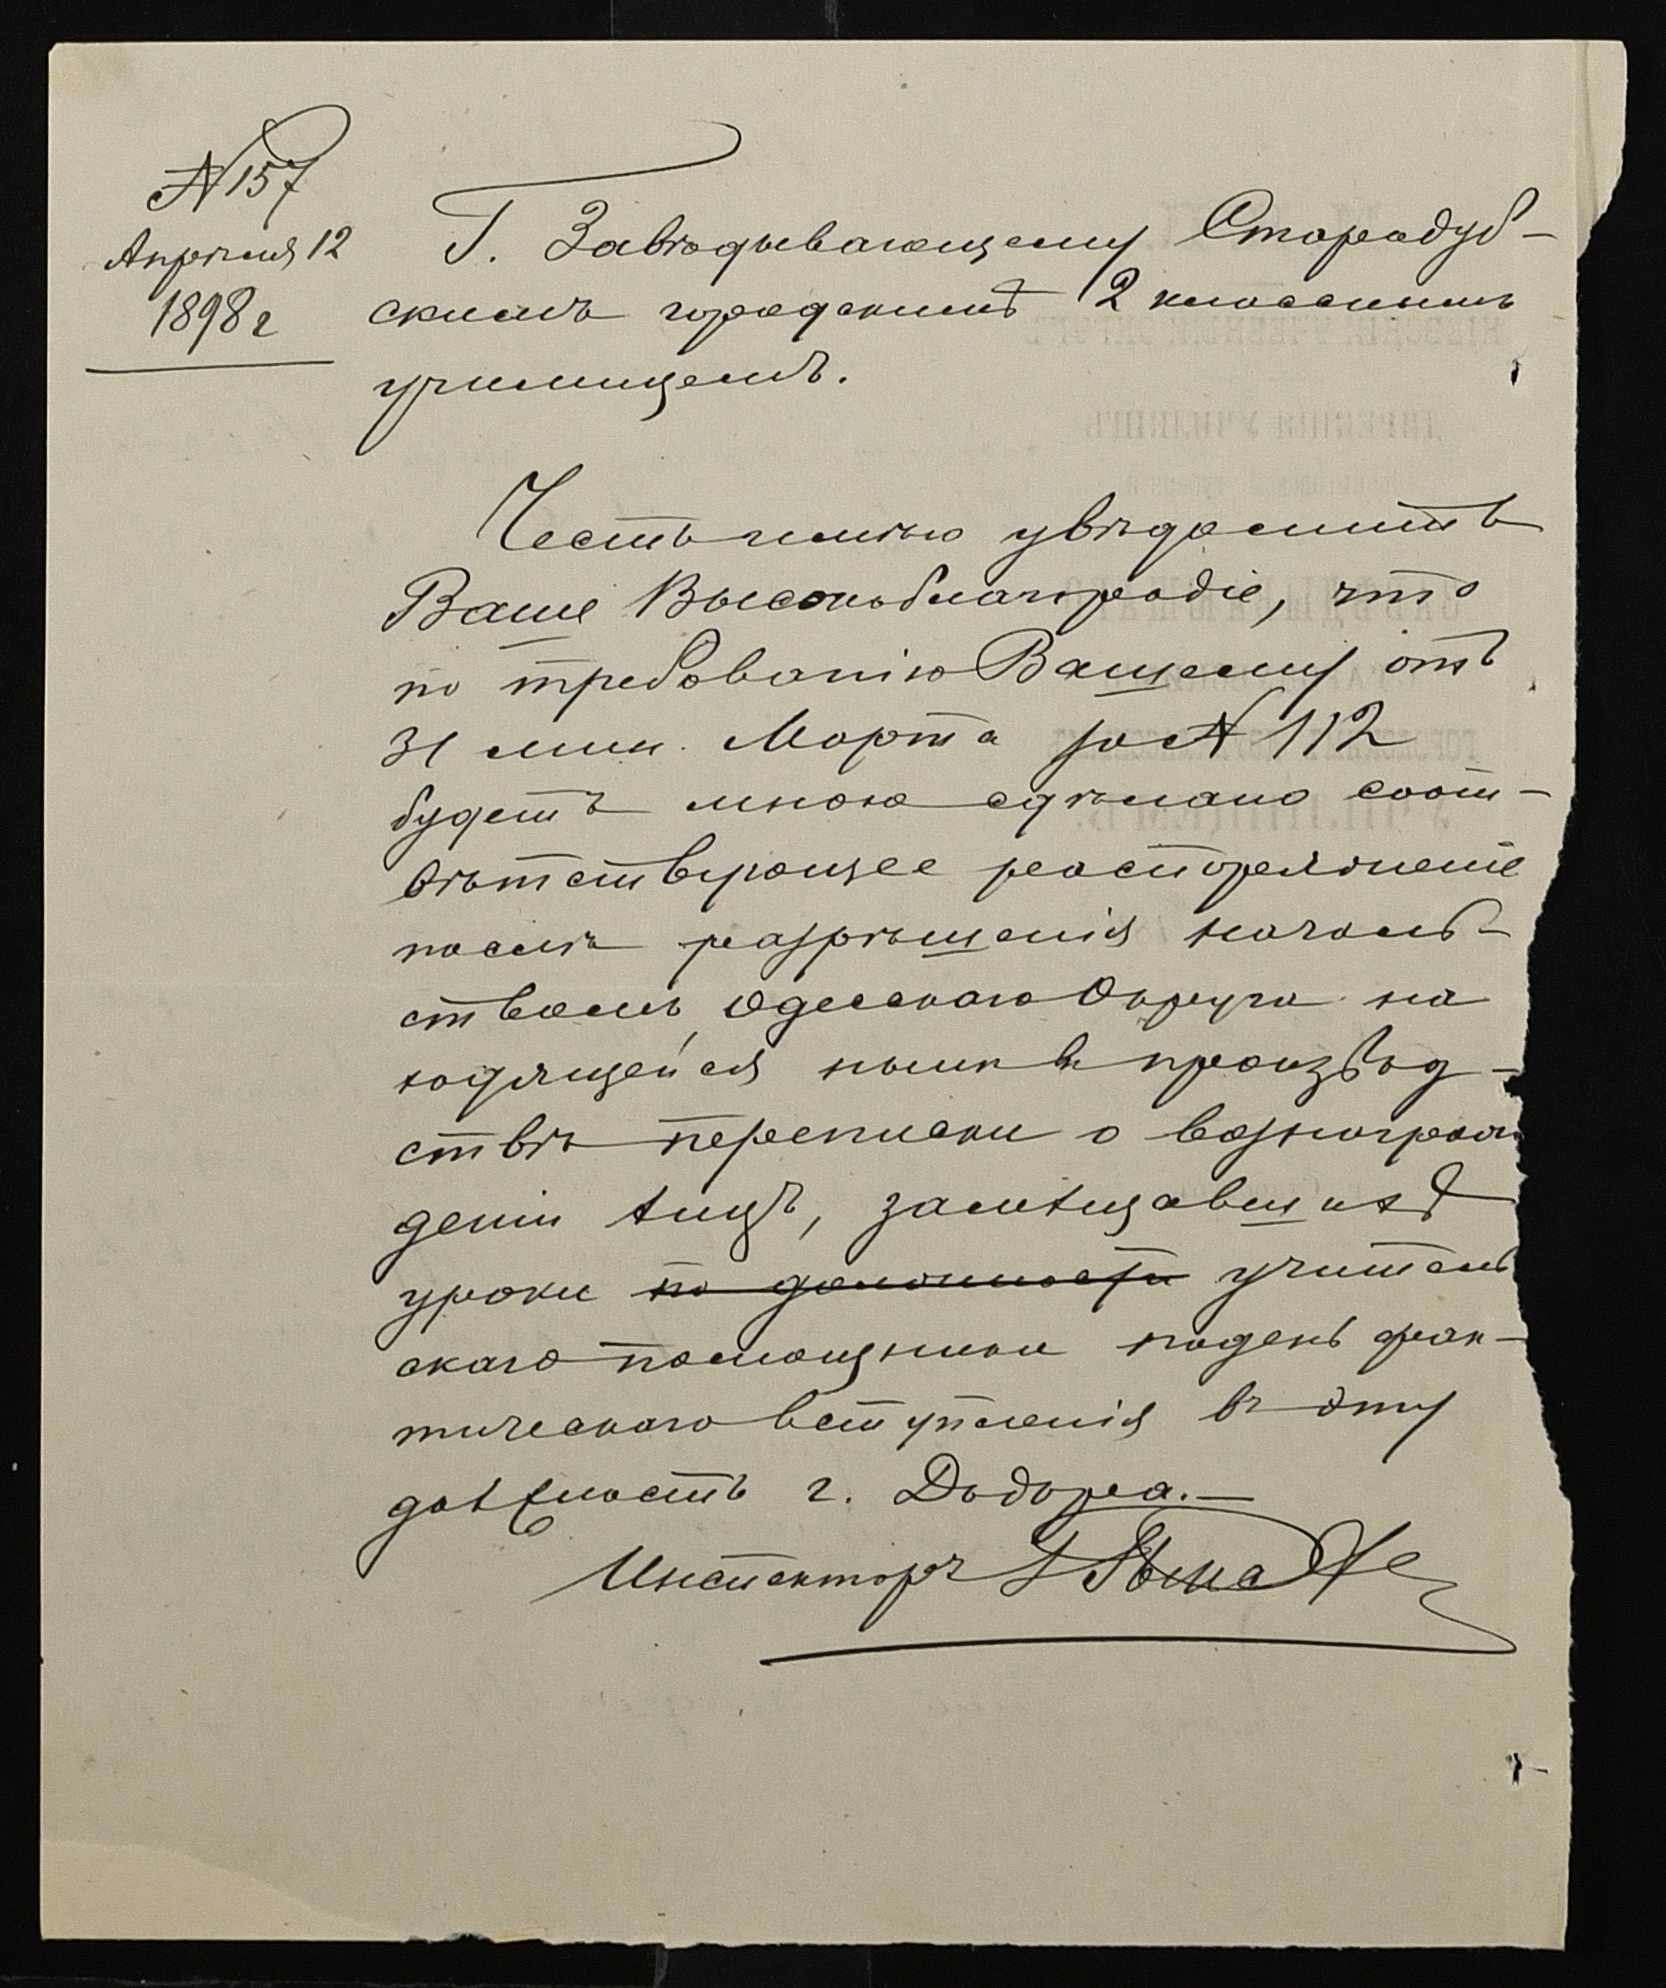 № 157
Апрѣля 12
1898 г
Г. Завѣдывающему Стародуб-
скимъ городскимъ 2 класснымъ
училищемъ.
Честь имѣю увѣдомить
Ваше Высокоблагородіе, что
по требованію Вашему отъ
31 мин. Марта за № 112
будетъ мною сдѣлано соот-
вѣтствующее распоряженіе
послѣ разрѣшенія началь-
ствомъ Одесскаго Округа на
ходящейся нынѣ въ производ-
ствѣ переписки о вознаграж
деніи лицъ, замѣщавшихъ
уроки по должности учитель
скаго помощника по день фак-
тическаго вступленія въ эту
должность г.
Инспекторъ